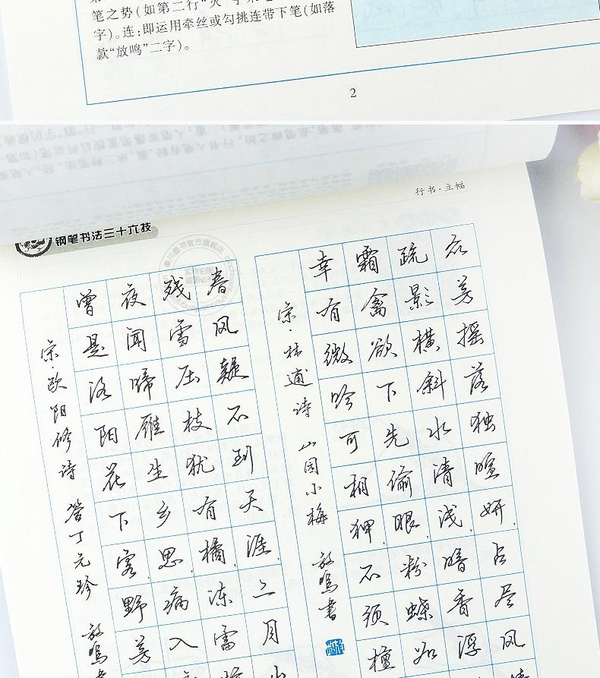 笔之势(如第二行“火”字
字)。连:即运用牵丝或勾挑连带下笔(如落
款“放鸣”二字)。
2
行书·立幅
钢笔书法三十六技
众芳摇落独暄妍占尽风
疏影横斜水清浅暗香浮
霜禽欲下先偷眼粉蝶如
幸有微吟可相狎不须檀
宋·林逋诗 山园小梅 放鸣书
春风疑不到天涯二月
残雪压枝犹有橘冻雷
夜闻啼雁生乡思病入
曾是洛阳花下客野芳
宋·欧阳修诗 答丁元珍 放鸣书